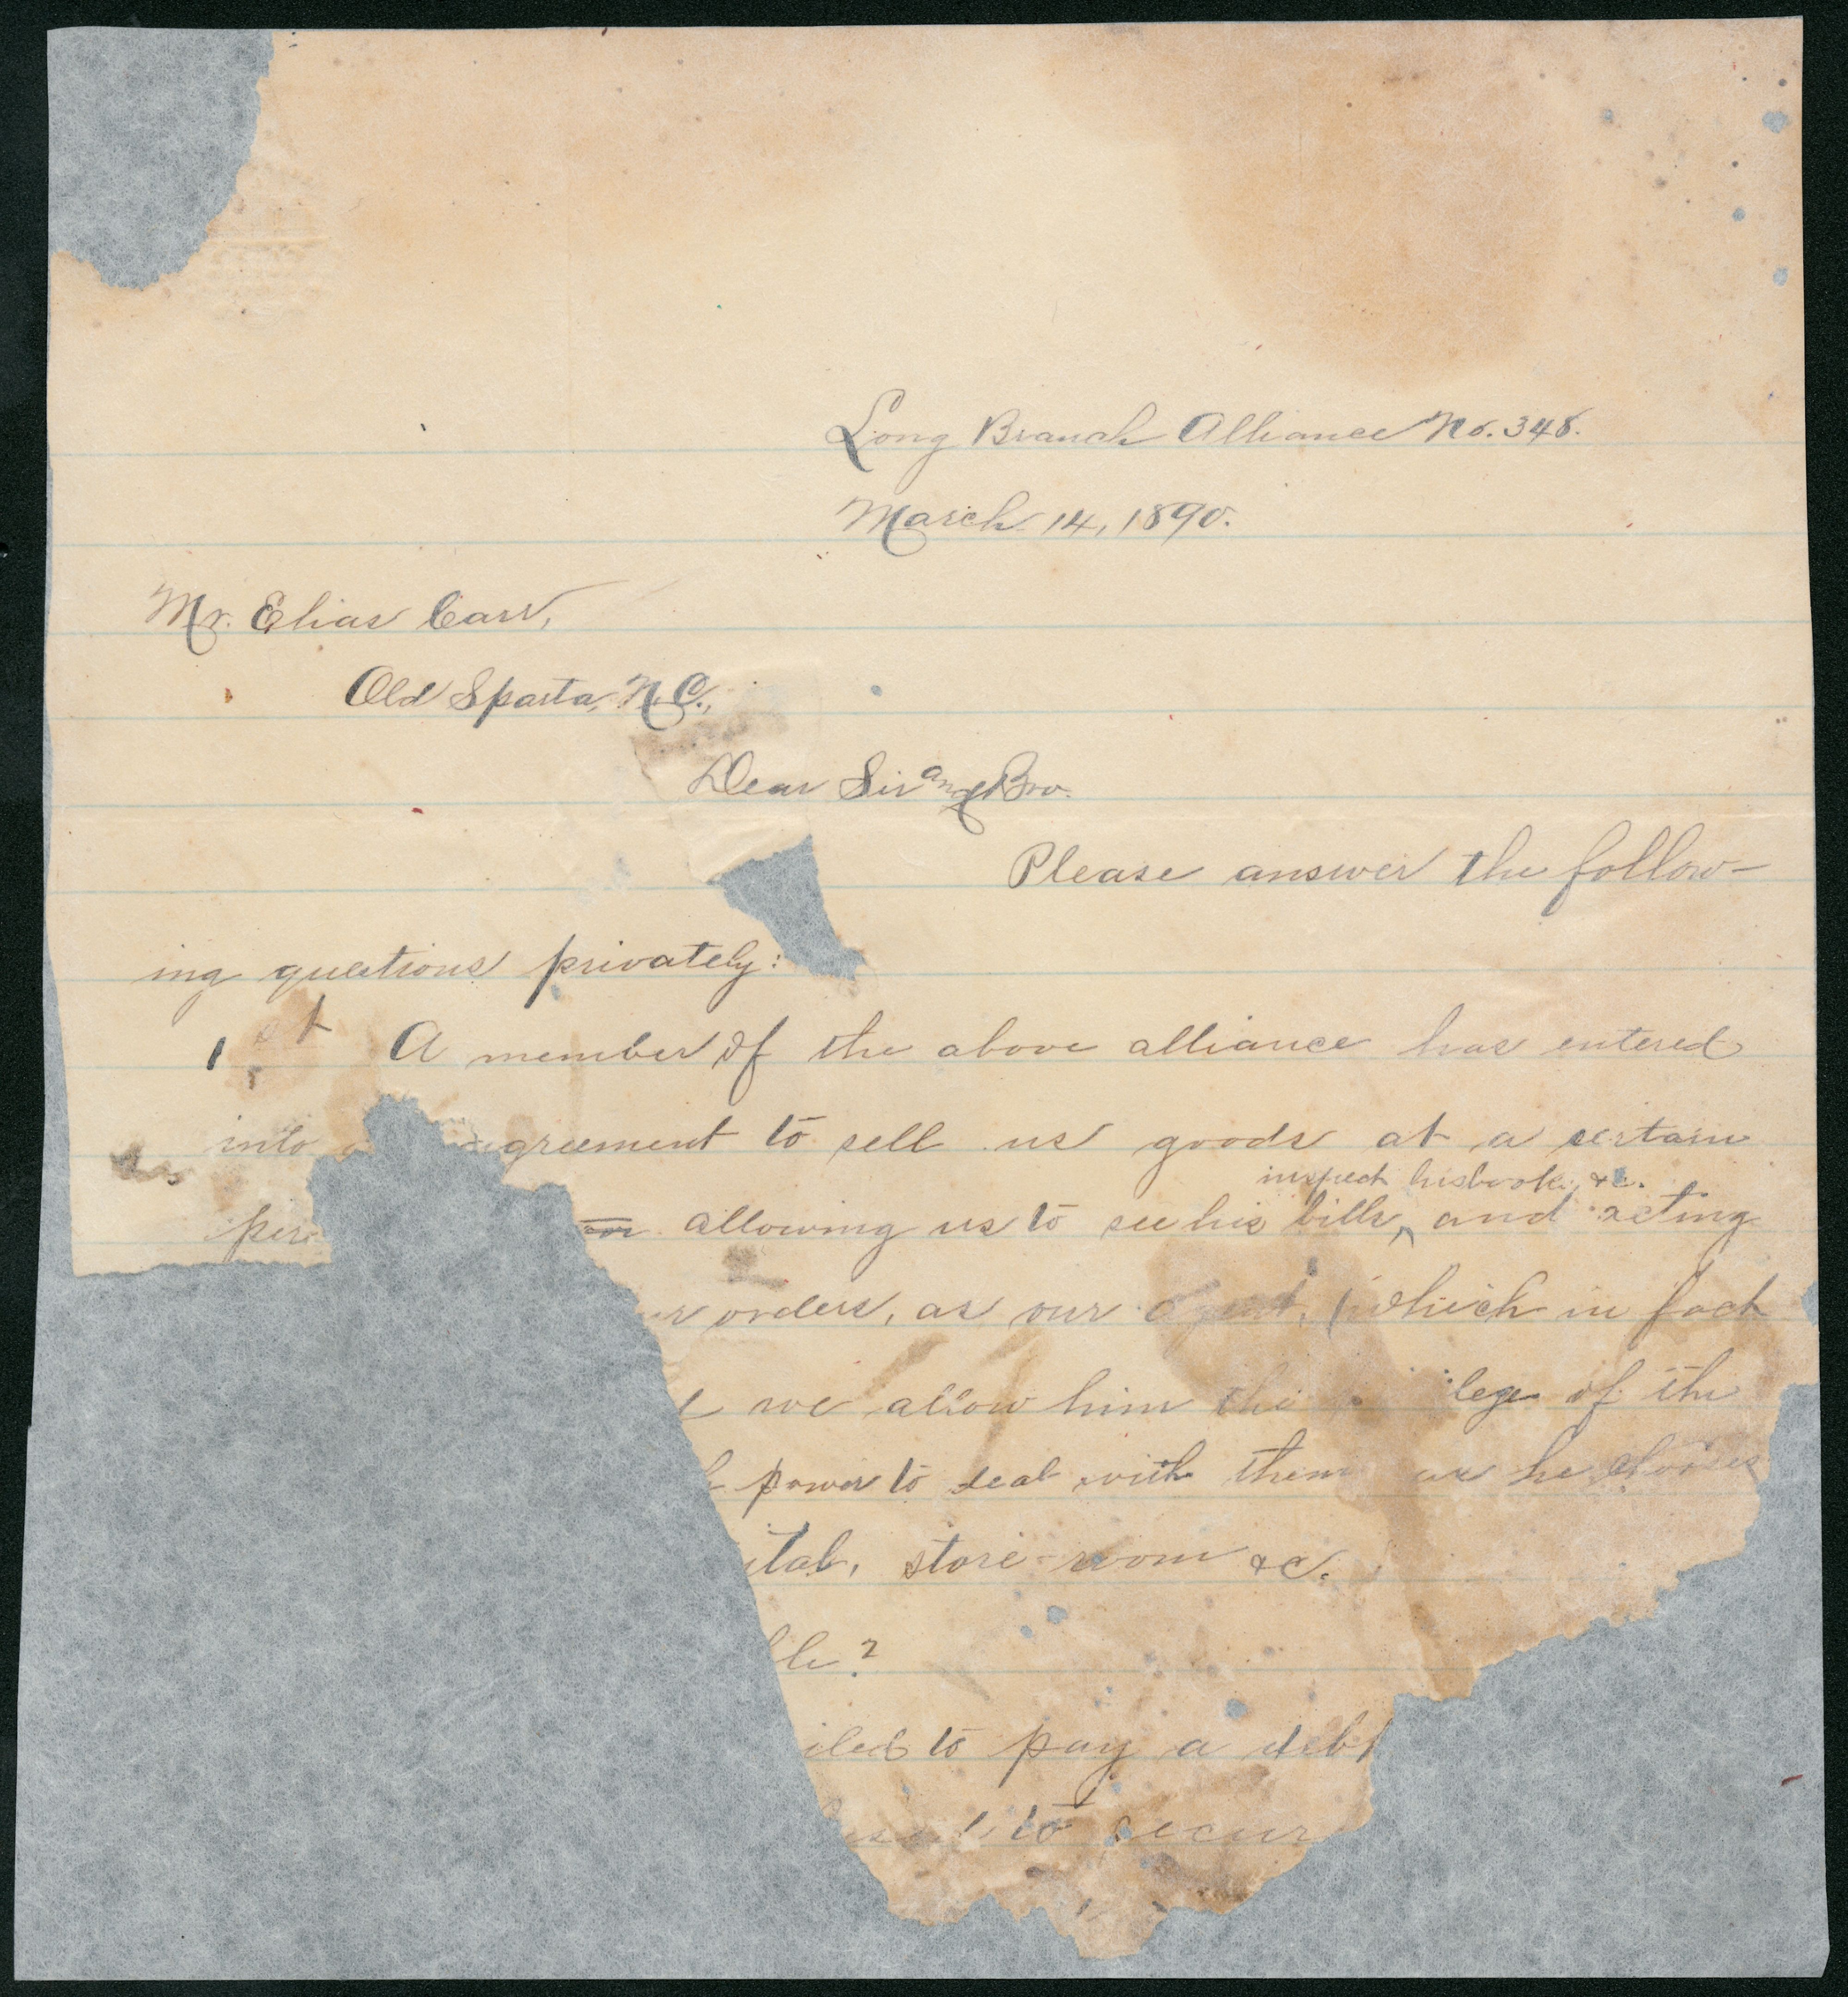 Long Branch Alliance No. 348.
March 14, 1890.
Mr. Elias Carr,
Old Sparta, N.C.,
Dear Sir and Bro.
Please answer the follow-
ing questions privately:
1st A member of the above alliance has entered
into agreement to sell us goods at a certain
inspect his books, &c.
per allowing us to see his bills, and acting
orders, as our agent, (which in fact
we allow him the of the
power to deal with them as he chooses
store-room &c.
to pay a debt
to secur